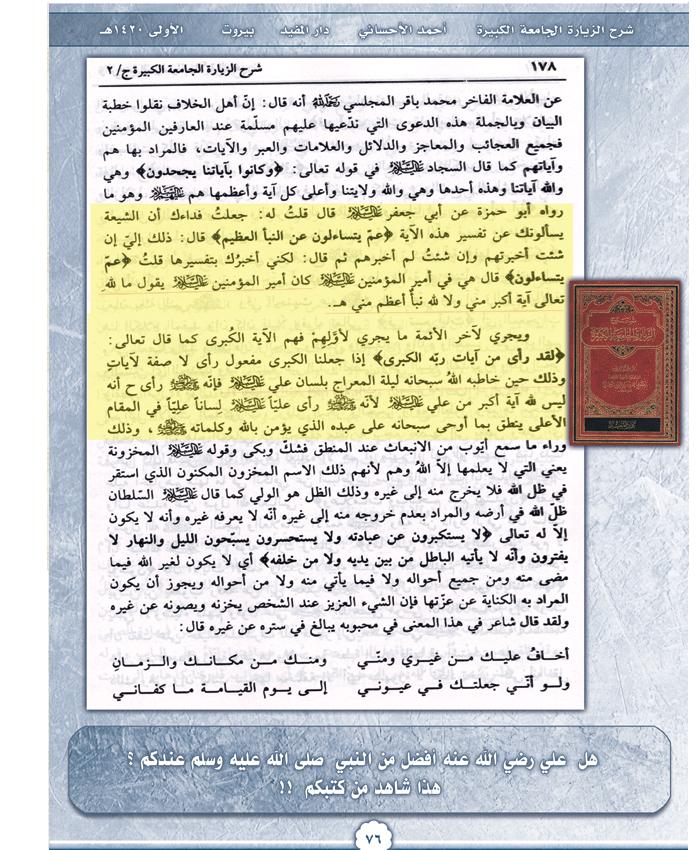 شرح الزيارة الجامعة الكبيرة أحمد الأحسائي دار المفيد بيروت الأولى ١٤٢٠هـ
١٧٨ شرح الزيارة الجامعة الكبيرة ج/٢
عن العلامة الفاخر محمد باقر المجلسي رحمه الله أنه قال: إنّ أهل الخلاف نقلوا خطبة
البيان وبالجملة هذه الدعوى التي ندّعيها عليهم مسلّمة عند العارفين المؤمنين
فجميع العجائب والمعاجز والدلائل والعلامات والعبر والآيات، فالمراد بها هم
وآياتهم كما قال السجاد عليه السلام في قوله تعالى: ﴿وكانوا بآياتنا يجحدون﴾ وهي
والله آياتنا وهذه أحدها وهي والله ولايتنا وأعلى كل آية وأعظمها هم عليهم السلام وهو ما
رواه أبو حمزة عن أبي جعفر عليه السلام قال قلتُ له: جعلتُ فداءك أن الشيعة
يسألونك عن تفسير هذه الآية ﴿عمّ يتساءلون عن النبأ العظيم﴾ قال: ذلك إليّ إن
شئت أخبرتهم وإن شئتُ لم أخبرهم ثم قال: لكني أخبرُك بتفسيرها قلتُ ﴿عمّ
يتساءلون﴾ قال هي في أمير المؤمنين عليه السلام كان أمير المؤمنين عليه السلام يقول ما للهِ
تعالى آية أكبر مني ولا لله نبأ أعظم مني هـ.
ويجري لآخر الأئمة ما يجري لأوّلهم فهم الآية الكُبرى كما قال تعالى:
﴿لقد رأى من آيات ربّه الكبرى﴾ إذا جعلنا الكبرى مفعول رأى لا صفة لآياتٍ
وذلك حين خاطبه اللهُ سبحانه ليلة المعراج بلسان علي عليه السلام فإنّه صلى الله عليه وآله رأى ح أنه
ليس لله آية أكبر من علي عليه السلام لأنّه صلى الله عليه وآله رأى عليّاً عليه السلام لِساناً عليّاً في المقام
الأعلى ينطق بما أوحى سبحانه على عبده الذي يؤمن بالله وكلماته صلى الله عليه وآله، وذلك
وراء ما سمع أيّوب من الانبعاث عند المنطق فشكّ وبكى وقوله عليه السلام المخزونة
يعني التي لا يعلمها إلاّ اللهُ وهم لأنهم ذلك الاسم المخزون المكنون الذي استقر
في ظل الله فلا يخرج منه إلى غيره وذلك الظل هو الولي كما قال عليه السلام السّلطان
ظلّ الله في أرضه والمراد بعدم خروجه منه إلى غيره أنّه لا يعرفه غيره وأنه لا يكون
إلاّ له تعالى ﴿لا يستكبرون عن عبادته ولا يستحسرون يسبّحون الليل والنهار لا
يفترون وأنّه لا يأتيه الباطل من بين يديه ولا من خلفه﴾ أي لا يكون لغير الله فيما
مضى منه ومن جميع أحواله ولا فيما يأتي منه ولا من أحواله ويجوز أن يكون
المراد به الكناية عن عزّتها فإن الشيء العزيز عند الشخص يخزنه ويصونه عن غيره
ولقد قال شاعر في هذا المعنى في محبوبه يبالغ في ستره عن غيره قال:
أخـاف عليـك مـن غيـري ومنـي ومنـك مـن مكـانـك والـزمـانِ
ولـو أنّـي جعلتـك فـي عيـونـي إلـى يـوم القيـامـة مـا كفـانـي
هل علي رضي الله عنه أفضل من النبي صلى الله عليه وسلم عندكم ؟
هذا شاهد من كتبكم !!
٧٦